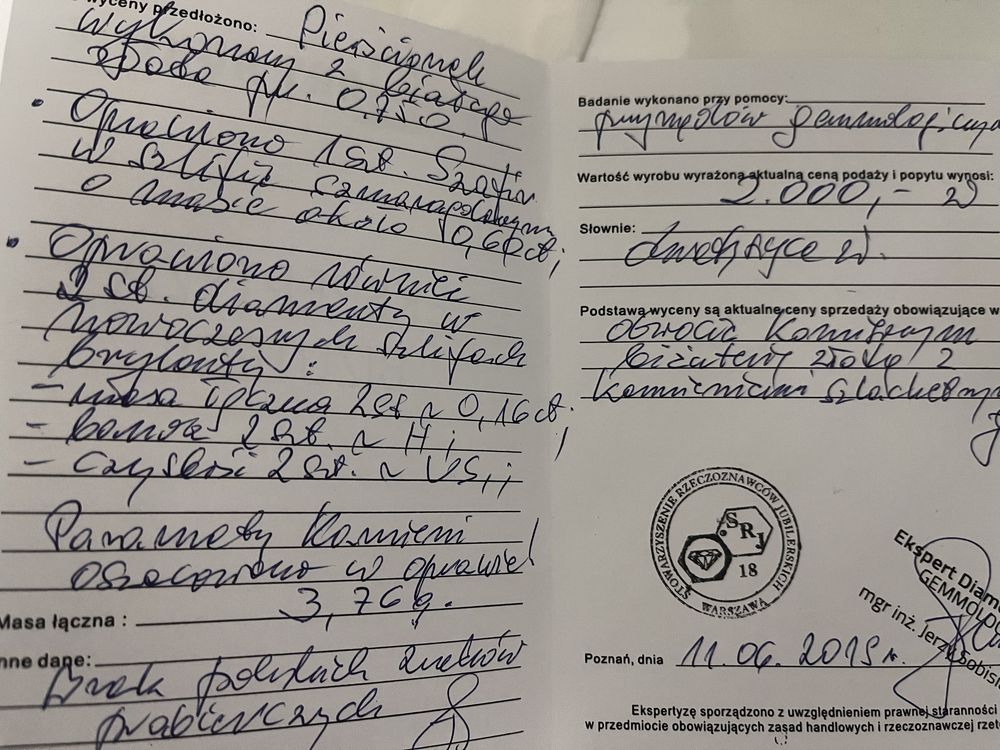 wyceny przedłożono: Pierścionek
wykonany z białego
złota pr. 0.750.
• Oprawiono 1 szt. Szafir
w szlifie szmaragdowym
o masie około 0,60ct;
• Oprawiono również
2 szt. diamenty w
nowoczesnych szlifach
brylanty:
- masa łączna 2szt ~ 0,16ct;
- barwa 2 szt. ~ H;
- czystość 2 szt. ~ VS₁;
Parametry kamieni
oszacowano w oprawie!
Masa łączna: 3,76g.
Inne dane:
Brak polskich znaków
probierczych
Badanie wykonano przy pomocy:
przyrządów
Wartość wyrobu wyrażona aktualną ceną podaży i popytu wynosi:
2.000,- zł
Słownie:
dwa tysiące zł.
Podstawą wyceny są aktualne ceny sprzedaży obowiązujące w
obrocie komisowym
biżuterią złotą z
kamieniami
STOWARZYSZENIE RZECZOZNAWCÓW JUBILERSKICH
SRJ
18
WARSZAWA
Ekspert
mgr inż. Jerzy
Poznań, dnia 11.06.2019r.
Ekspertyzę sporządzono z uwzględnieniem prawnej staranności
w przedmiocie obowiązujących zasad handlowych i rzeczoznawczej